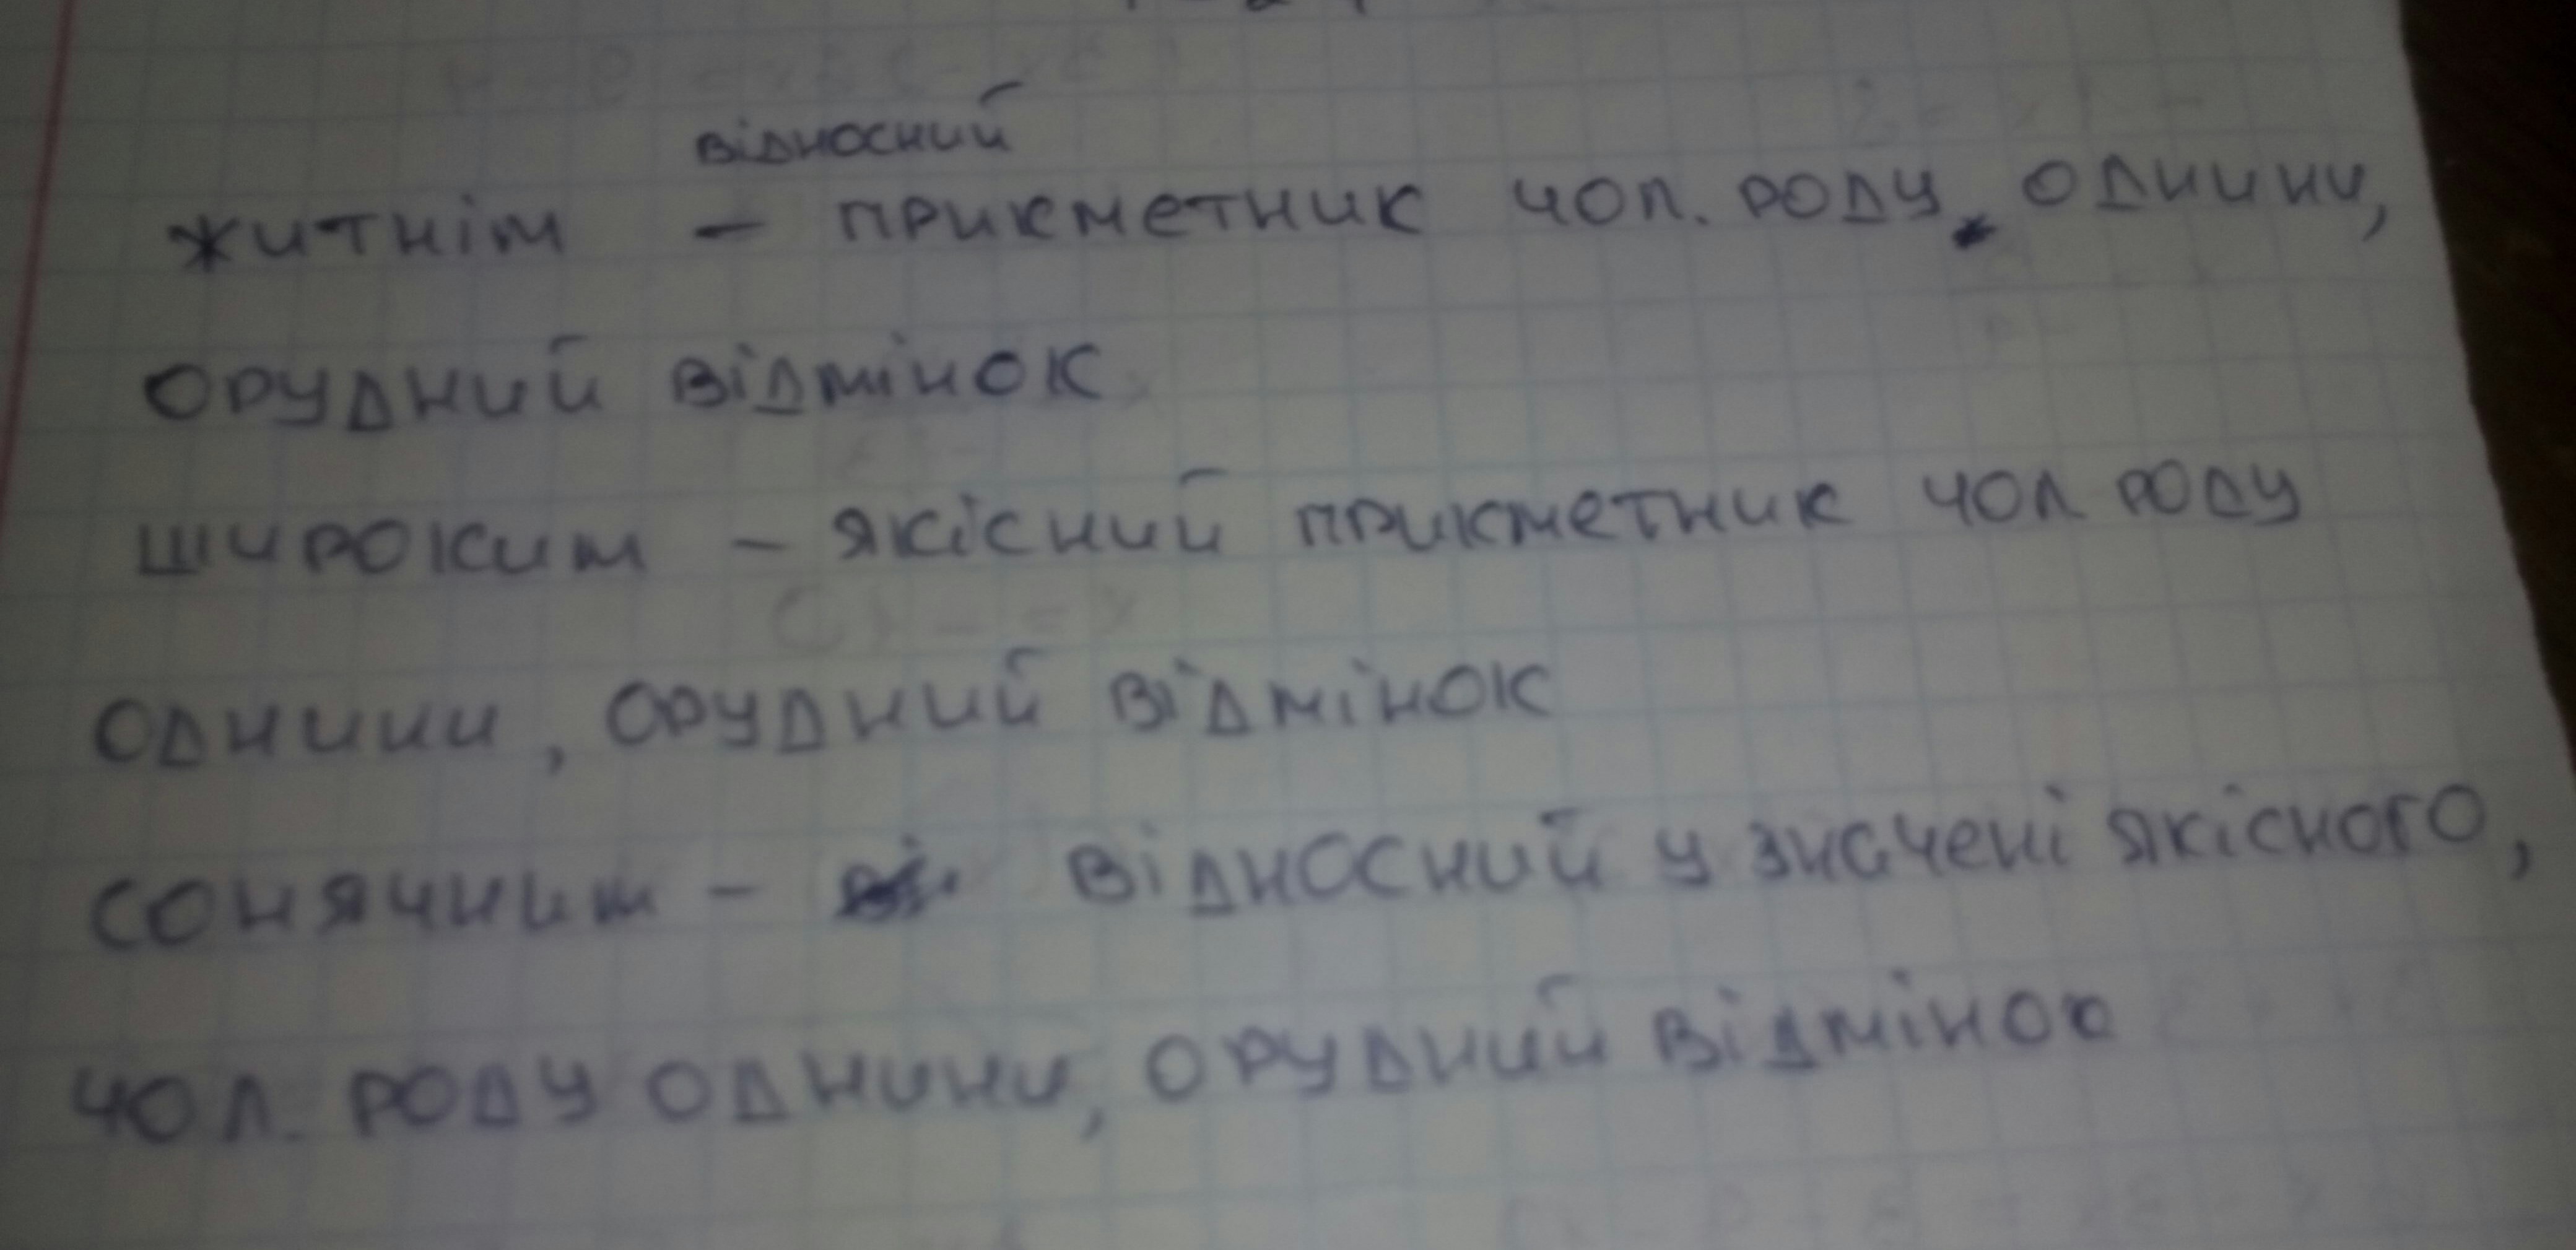 відносний
житнім - прикметник чол. роду, однини,
орудний відмінок
широким - якісний прикметник чол роду
однини, орудний відмінок
сонячним - відносний у значені якісного,
чол. роду однини, орудний відмінок